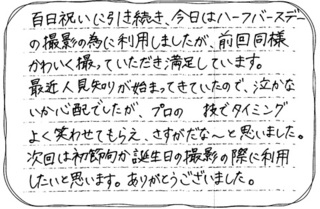 百日祝いに引き続き、今日はハーフバースデー
の撮影の為に利用しましたが、前回同様
かわいく撮っていただき満足しています。
最近人見知りが始まってきていたので、泣かな
いか心配でしたが、プロの 技でタイミング
よく笑わせてもらえ、さすがだな〜と思いました。
次回は初節句か誕生日の撮影の際に利用
したいと思います。ありがとうございました。